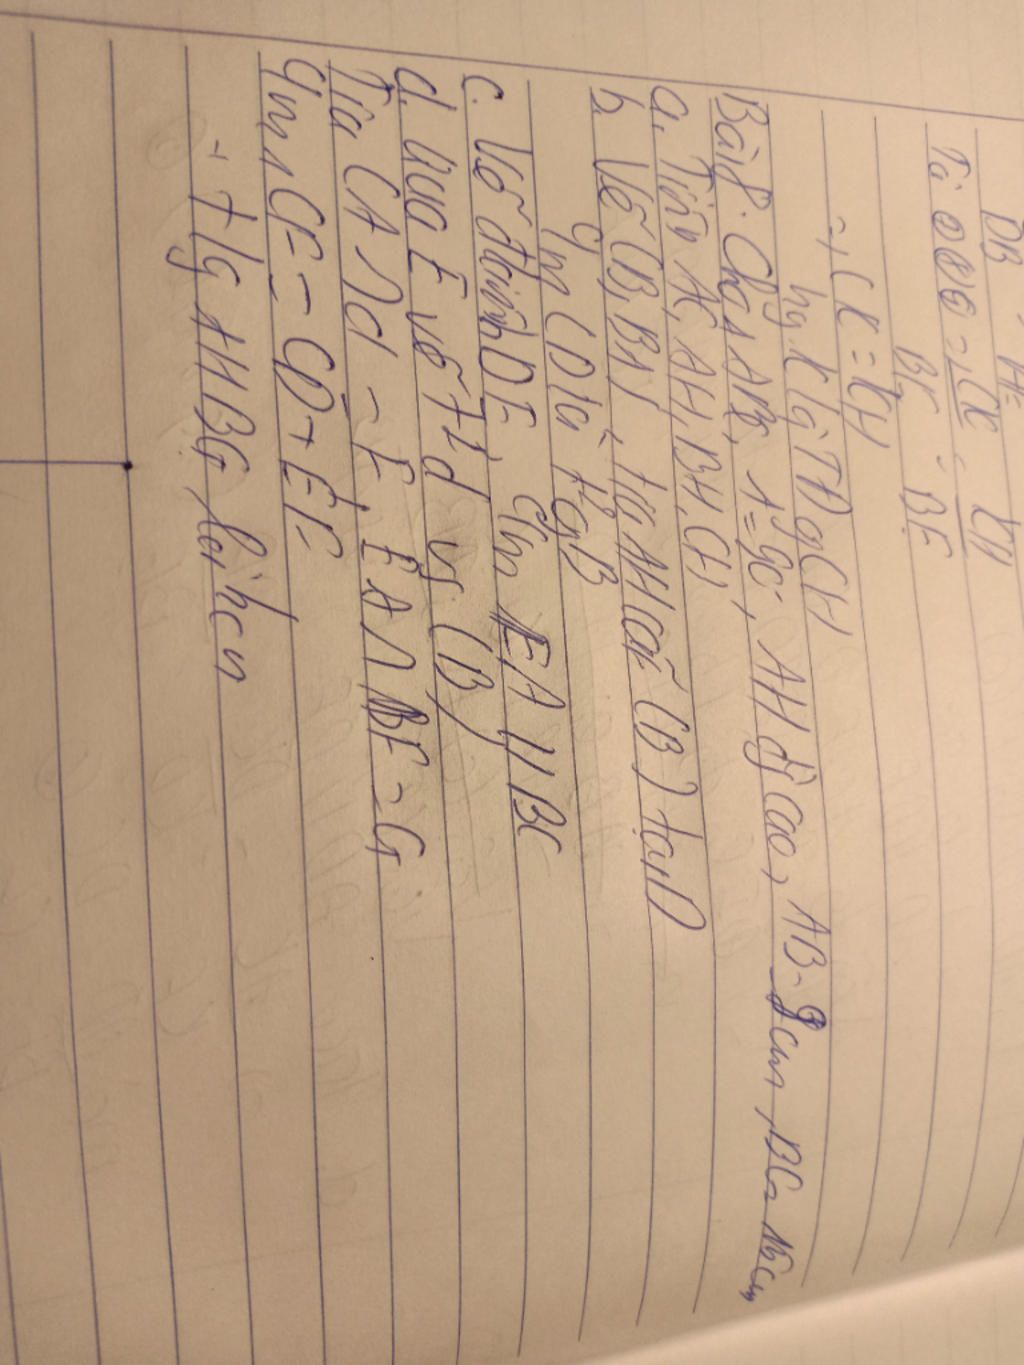 BB
AE
Từ => CK = KH
BF BE
=> CK = KH
hay K là TĐ của CH
Bài 8. Cho Δ ABC, A = 90°, AH đg cao, AB = 9 cm, BC = 15 cm
a. Tính AC, AH, BH, CH
b. Vẽ (B, BA), tia AH cắt (B) tại D
Cm CD là t² của B
c. Vẽ đkính DE, Cm EA // BC
d. Qua E vẽ t² d vs (B)
Tia CA ∩ d = F, EA ∩ BF = G
Cm, CF = CD + EF
+ tg AHBG là hcn